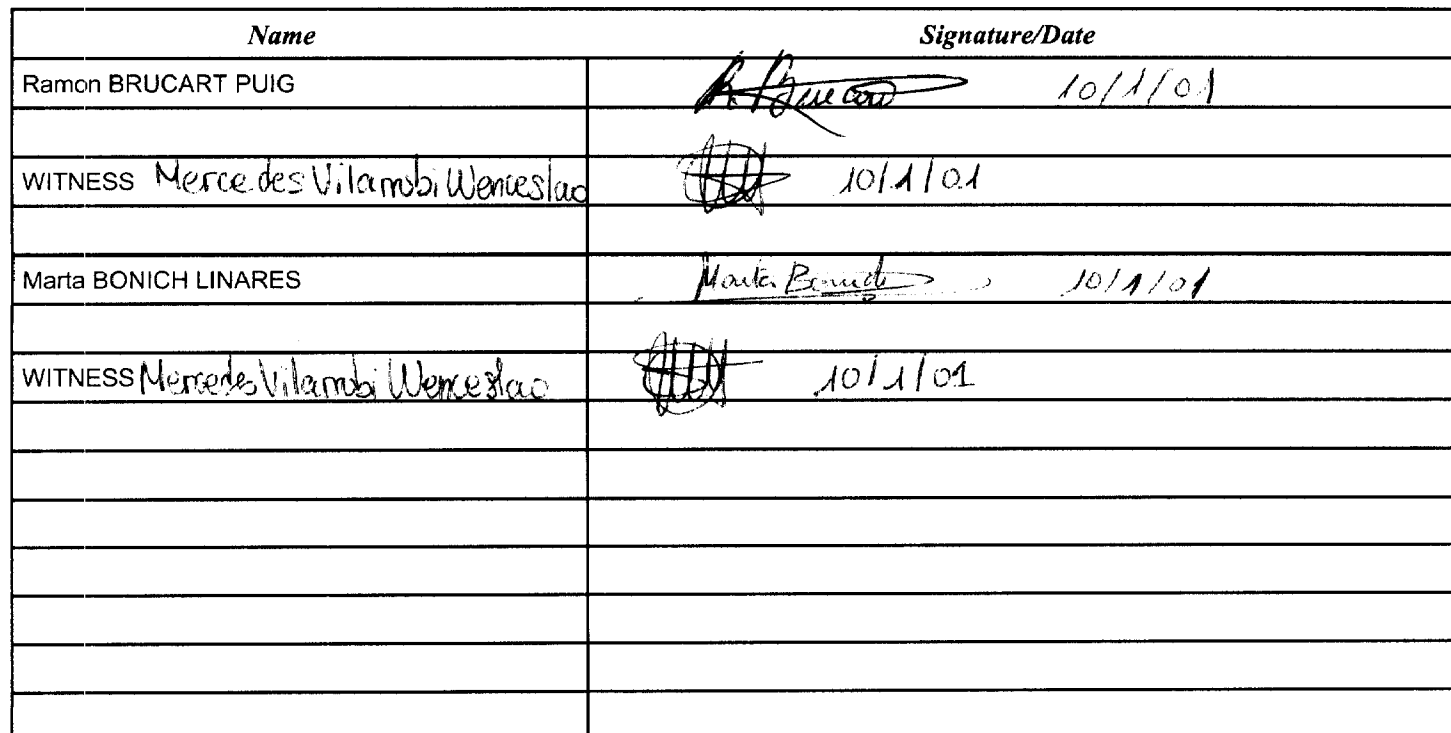 Name Signature/Date
Ramon BRUCART PUIG R. Brucart 10/1/01
WITNESS Mercedes Vilarrubi Wenceslao 10/1/01
Marta BONICH LINARES Marta Bonich 10/1/01
WITNESS Mercedes Vilarrubi Wenceslao 10/1/01